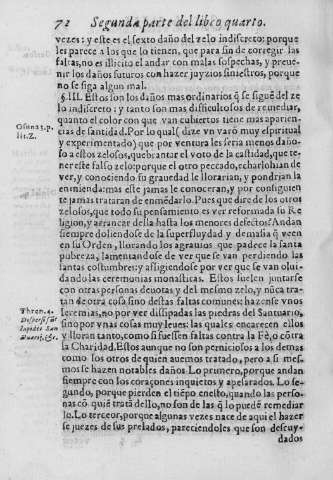 72 Segunda parte del libro quarto.
vezes: y este es el sexto daño del zelo indiscreto: porque
les parece a los que lo tienen, que para fin de corregir las
faltas, no es illicito el andar con malas sospechas, y preue-
nir los daños futuros con hazer juyzios siniestros, porque
no se siga algun mal.
§. III. Estos son los daños mas ordinarios q̃ se siguẽ del ze
lo indiscreto: y tanto son mas dificultosos de remediar,
quanto el color con que van cubiertos tiene mas aparien-
Osuna 1. p.
cias de santidad. Por lo qual (dize vn varõ muy espiritual
lit. Z.
y experimentado) que por ventura les seria menos daño-
so a estos zelosos, quebrantar el voto de la castidad, que te-
ner este falso zelo: porque el otro peccado, echarlo hian de
ver, y conociendo su grauedad le llorarian, y pondrian la
enmienda: mas este jamas le conoceran, y por consiguien
te jamas trataran de enmẽdarlo. Pues que dire de los otros
zelosos, que todo su pensamiento es ver reformada su Re
ligion, y arrancar della hasta los menores defectos? Andan
siempre doliendose de la superfluydad y demasia q̃ veen
en su Orden, llorando los agrauios que padece la santa
pobreza, lamentandose de ver que se van perdiendo las
santas costumbres: y affligiendose por ver que se van olui-
dando las ceremonias monasticas. Estos suelen juntarse
con otras personas deuotas y del mesmo zelo, y nũca tra-
tan de otra cosa sino destas faltas comunes: hazense vnos
Thren. 4.
Ieremias, no por ver dissipadas las piedras del Santuario,
Dispersi sũt
sino por vnas cosas muy leues: las quales encarecen ellos
lapides San
y lloran tanto, como si fuessen faltas contra la Fè, o cõtra
ctuarij, &c.
la Charidad. Estos aunque no son perniciosos a los demas
como los otros de quien auemos tratado, pero a si mes-
mos se hazen notables daños. Lo primero, porque andan
siempre con los coraçones inquietos y apesarados. Lo se-
gundo, porque pierden el tiẽpo en esto, quando las perso-
nas cõ quiẽ trata dello, no son de las q̃ lo puedẽ remediar
lo. Lo tercero, porque algunas vezes nace de aqui el hazer
se juezes de sus prelados, pareciendoles que son descuy-
dados